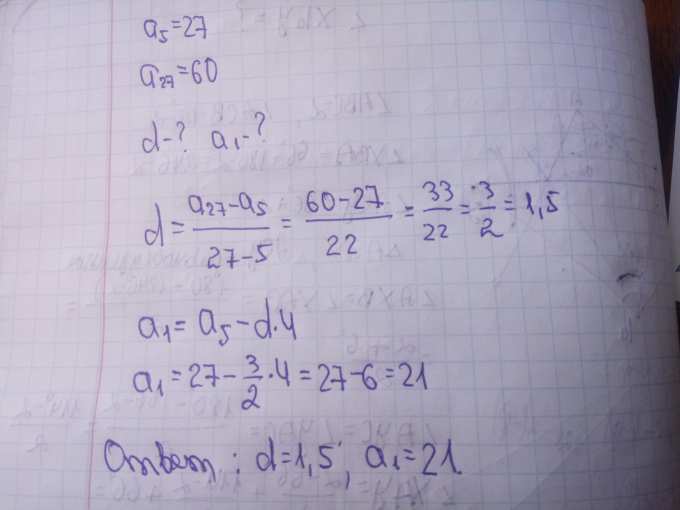 a₅=27
a₂₇=60
d-? a₁-?
d = (a₂₇-a₅)/(27-5) = (60-27)/22 = 33/22 = 3/2 = 1,5
a₁ = a₅ - d·4
a₁ = 27 - 3/2 · 4 = 27-6 = 21
Ответ: d=1,5, a₁=21.